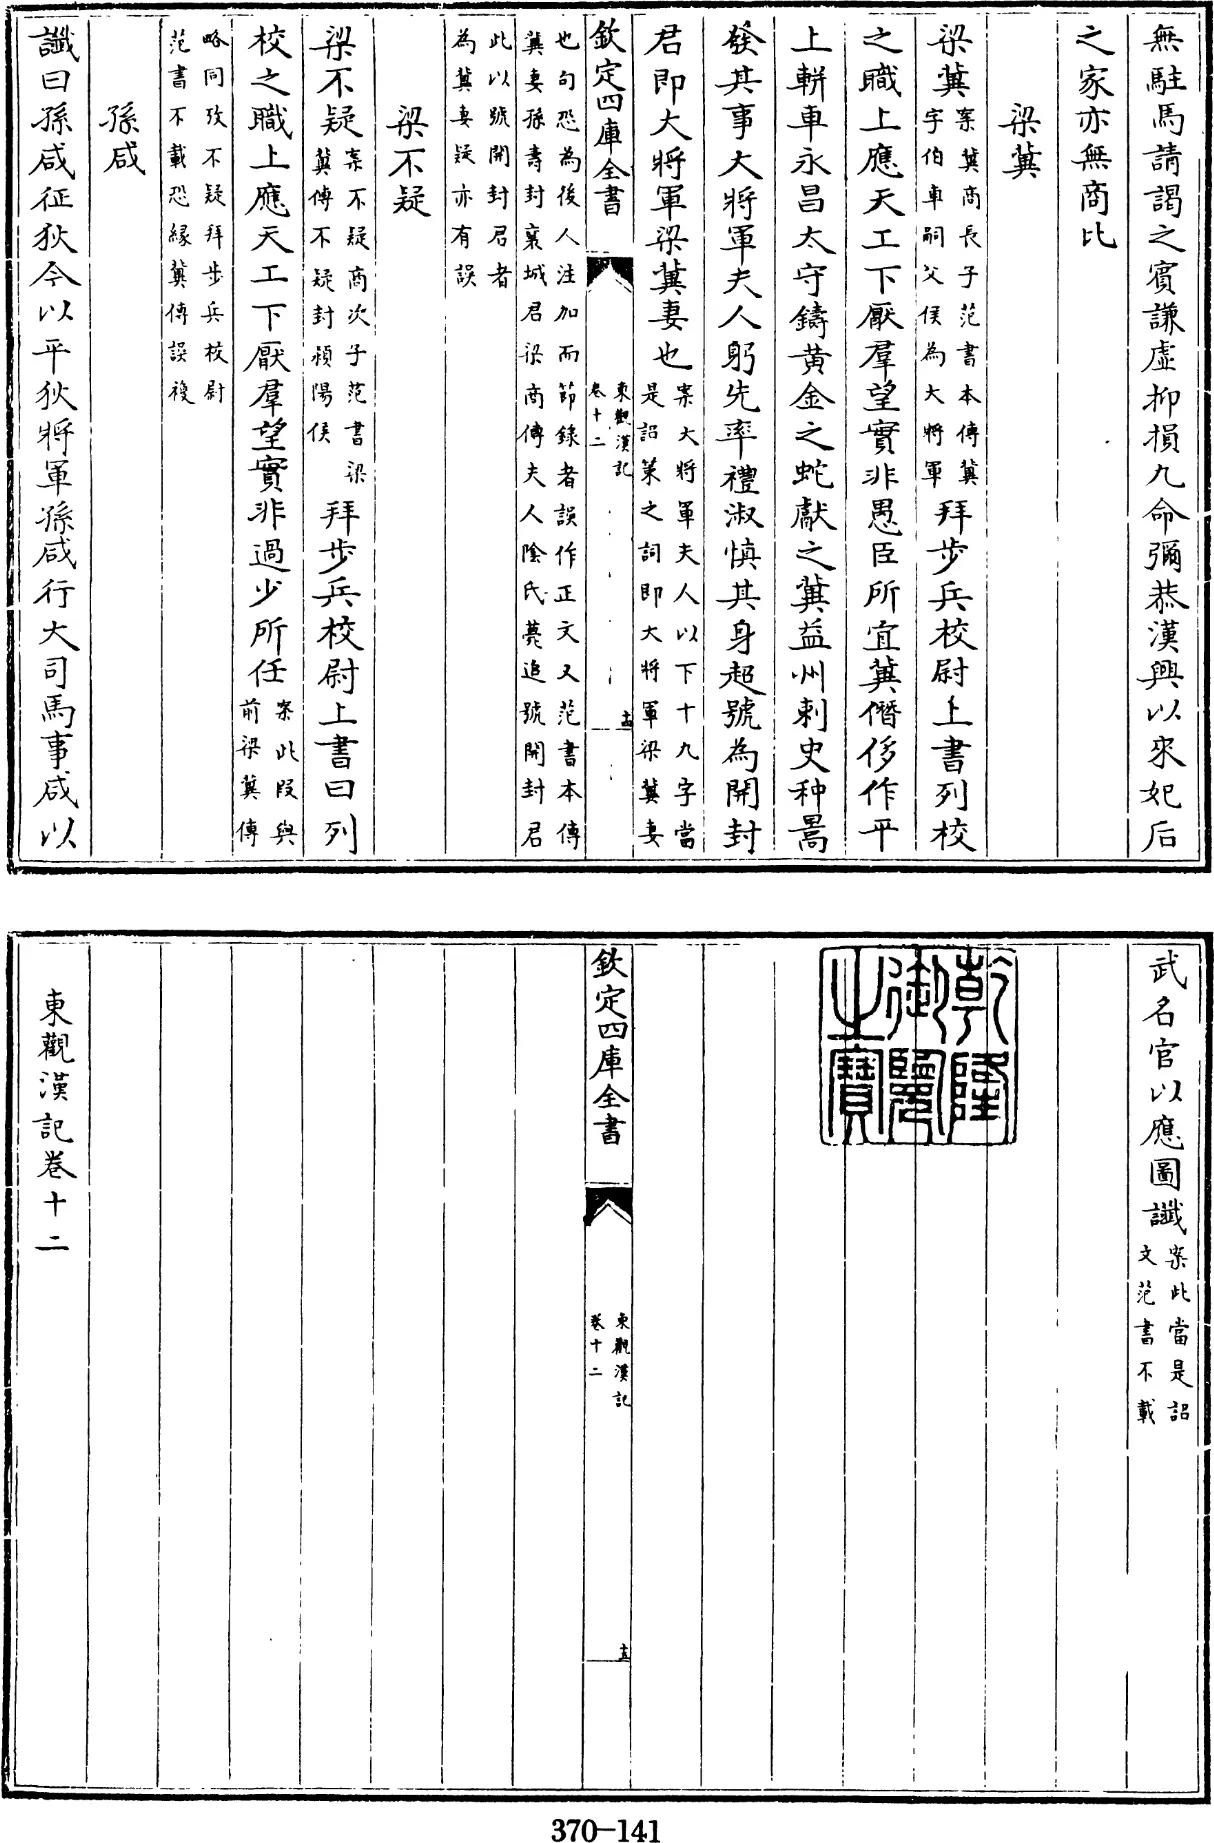 無駐馬請謁之賓謙虛抑損九命彌恭漢興以來妃后
之家亦無商比
梁冀
梁冀案冀商長子范書本傳冀
字伯車嗣父侯為大將軍拜步兵校尉上書列校
之職上應天工下厭羣望實非愚臣所宜冀僭侈作平
上軿車永昌太守鑄黃金之蛇獻之冀益州刺史种暠
發其事大將軍夫人躬先率禮淑慎其身超號為開封
君即大將軍梁冀妻也案大將軍夫人以下十九字當
是詔策之詞即大將軍梁冀妻
欽定四庫全書
東觀漢記
卷十二
十四
也句恐為後人注加而節錄者誤作正文又范書本傳
冀妻孫壽封襄城君梁商傳夫人陰氏薨追號開封君
此以號開封君者
為冀妻疑亦有誤
梁不疑
梁不疑案不疑商次子范書梁
冀傳不疑封潁陽侯拜步兵校尉上書曰列
校之職上應天工下厭羣望實非過少所任案此段與
前梁冀傳
略同攷不疑拜步兵校尉
范書不載恐緣冀傳誤複
孫咸
讖曰孫咸征狄今以平狄將軍孫咸行大司馬事咸以
武名官以應圖讖案此當是詔
文范書不載
乾隆
御覽
之寶
欽定四庫全書
東觀漢記
卷十二
十五
東觀漢記卷十二
370-141